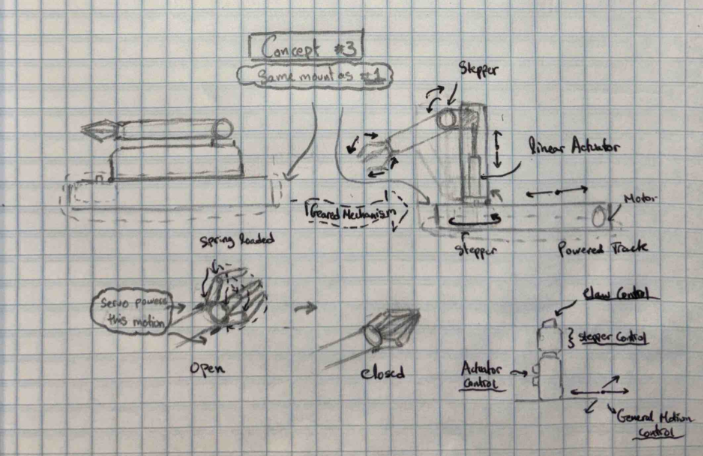 Concept #3
Same mount as #1
Stepper
Linear Actuator
Geared Mechanism
Motor
Spring loaded
Stepper
Powered Track
Servo powers
this motion
Open
Closed
Claw Control
Stepper Control
Actuator
Control
General Motion
Control